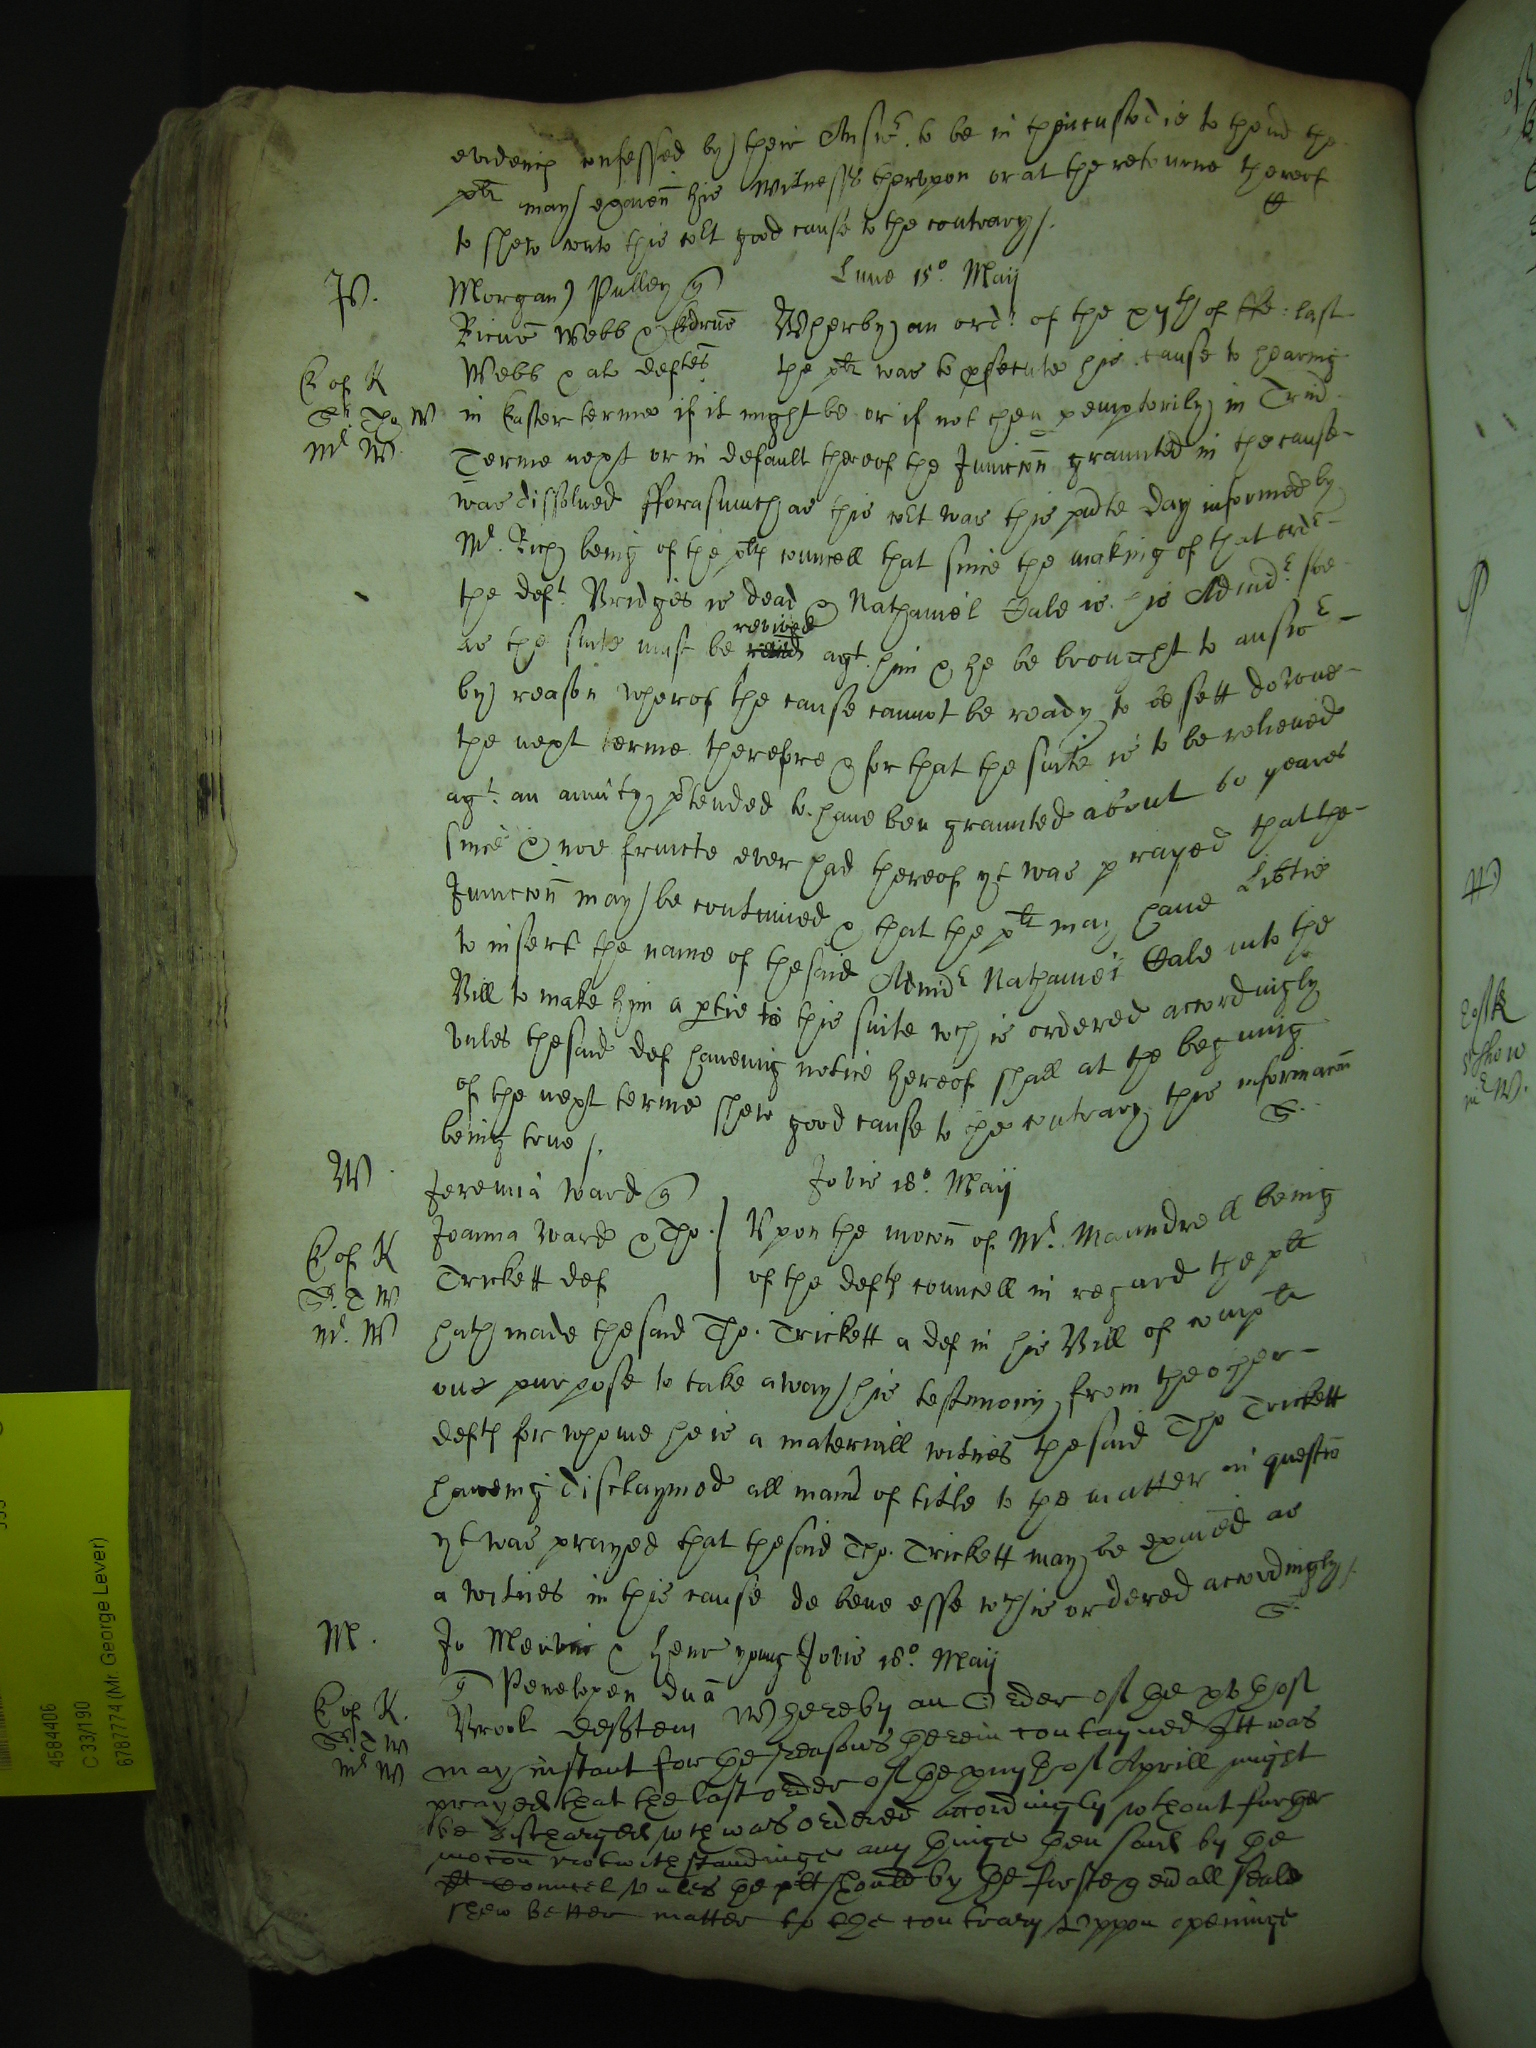 evidence confessed by their Answ.r to be in their custodie to thend the
plt may exaiem his witnesses therupon or at the retourne thereof
to shew unto this co.rt good cause to the contrary /.
Lune 15o Maij
Morgan Pulley q
Ricus Webb & Edrus
Webb & at deftes
Wherby an ord.r of the xijth of ffe: last
the plt was to psecute his cause to hearing
E of K
Sr Tho W
Mr W
in Easter terme if it might be or if not then pemptorily in Trin
Terme next or in default thereof the Iniuccon graunted in the cause
was dissolued fforasmuch as this co.rt was this pnte day informed by
Mr. Rich being of the plts councell that since the making of that ord.r
the deft. Bridges is dead & Nathaniel Dale is his Admid.r soe
as the suite must be revived agt. him & he be brought to answ.r
by reason wherof the cause cannot be ready to be sett downe
the next terme therefore & for that the suite is to be relieued
agt. an anuity ptended to haue ben graunted about 60 yeares
since & noe fruicte ever had thereof yt was prayed that the
Iniuccon may be continued & that the plt may haue Libtie
to insert the name of the said Admid.r Nathaniel Dale into the
Bill to make him a ptie to this suite wch is ordered accordingly
vnles the said def haueing notice hereof shall at the begining
of the next terme shew good cause to the contrary this informacon
being true /.
S.
W
Jeremia Ward q
Jovis 18o. Maij
Joanna Ward & Tho.
Trickett def
Vpon the mocon of Mr. Maundrell being
of the defts councell in regard the plt
E of K
Sr. T W
Mr. W
hath made the said Tho. Trickett a def in his Bill of complt
one purpose to take away his testimony from the other
defts for whome he is a materiall witnes the said Tho Trickett
haveing disclaymed all man of title to the matter in questio
yt was prayed that the said Tho. Trickett may be exied as
a witnes in this cause de bene esse wch is ordered accordingly /.
S.
M.
Jo & Henr yong Jovis 18o. Maij
q Penelopen dna
Brook defztem
Whereby an Order of the xth of
E of K.
Sr T W
Mr W
may instant for the reasons herein contayned Itt was
prayed that the last order of the xiiijth of Aprill might
be discharged wch was ordered accordingly wthout further
mocon notwithstandinge any thinge then said by the
plt councel vnles the plt should by the firste genall seale
shew better matter to the contrary Vppon openinge
4584406
C 33/190
6787774 (Mr. George Lever)